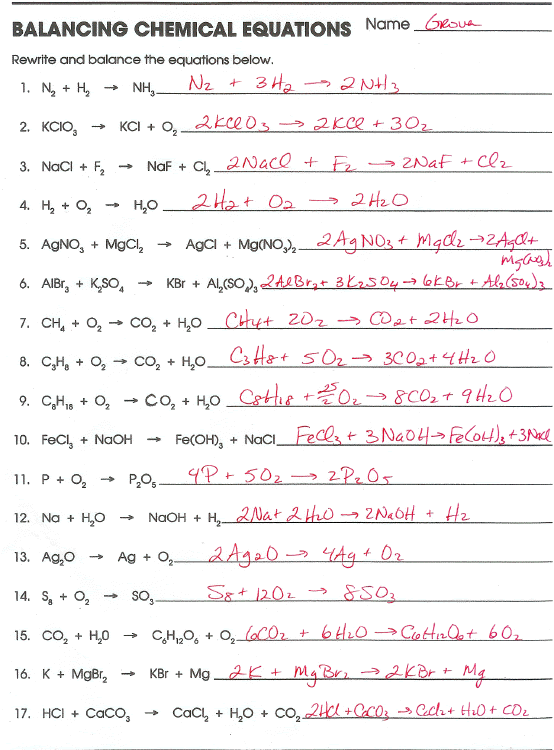 BALANCING CHEMICAL EQUATIONS Name Grova
Rewrite and balance the equations below.
1. N₂ + H₂ → NH₃ N₂ + 3H₂ → 2NH₃
2. KClO₃ → KCl + O₂ 2KClO₃ → 2KCl + 3O₂
3. NaCl + F₂ → NaF + Cl₂ 2NaCl + F₂ → 2NaF + Cl₂
4. H₂ + O₂ → H₂O 2H₂ + O₂ → 2H₂O
5. AgNO₃ + MgCl₂ → AgCl + Mg(NO₃)₂ 2AgNO₃ + MgCl₂ → 2AgCl +
Mg(NO₃)₂
6. AlBr₃ + K₂SO₄ → KBr + Al₂(SO₄)₃ 2AlBr₃ + 3K₂SO₄ → 6KBr + Al₂(SO₄)₃
7. CH₄ + O₂ → CO₂ + H₂O CH₄ + 2O₂ → CO₂ + 2H₂O
8. C₃H₈ + O₂ → CO₂ + H₂O C₃H₈ + 5O₂ → 3CO₂ + 4H₂O
9. C₈H₁₈ + O₂ → CO₂ + H₂O C₈H₁₈ + 25/2 O₂ → 8CO₂ + 9H₂O
10. FeCl₃ + NaOH → Fe(OH)₃ + NaCl FeCl₃ + 3NaOH → Fe(OH)₃ + 3NaCl
11. P + O₂ → P₂O₅ 4P + 5O₂ → 2P₂O₅
12. Na + H₂O → NaOH + H₂ 2Na + 2H₂O → 2NaOH + H₂
13. Ag₂O → Ag + O₂ 2Ag₂O → 4Ag + O₂
14. S₈ + O₂ → SO₃ S₈ + 12O₂ → 8SO₃
15. CO₂ + H₂O → C₆H₁₂O₆ + O₂ 6CO₂ + 6H₂O → C₆H₁₂O₆ + 6O₂
16. K + MgBr₂ → KBr + Mg 2K + MgBr₂ → 2KBr + Mg
17. HCl + CaCO₃ → CaCl₂ + H₂O + CO₂ 2HCl + CaCO₃ → CaCl₂ + H₂O + CO₂